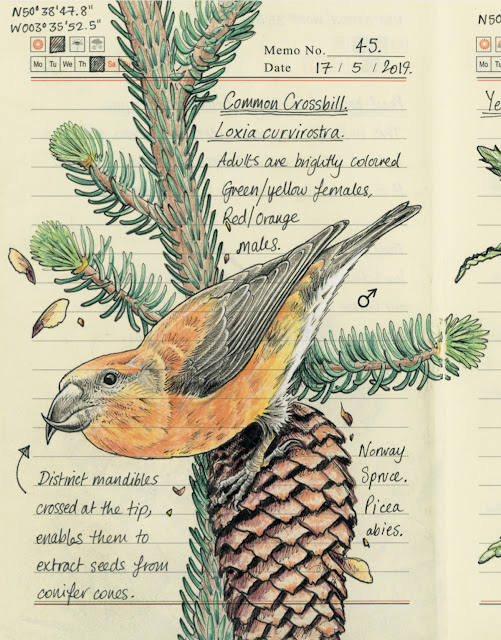 N50° 38'47.8"
W003° 35'52.5"
Mo Tu We Th Sa
Memo No. 45.
Date 17 / 5 / 2019.
Common Crossbill.
Loxia curvirostra.
Adults are brightly coloured
Green/yellow females,
Red/Orange
males.
♂
Distinct mandibles
crossed at the tip,
enables them to
extract seeds from
conifer cones.
Norway
Spruce.
Picea
abies.
N50
Mo Tu
Ye